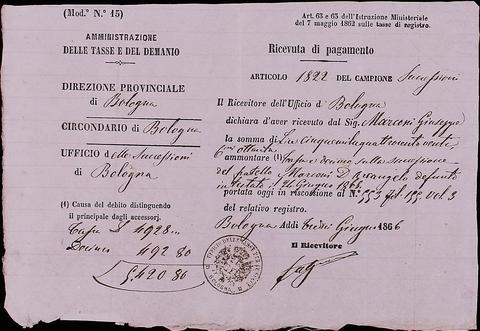 (Mod.° N.° 15)
AMMINISTRAZIONE
DELLE TASSE E DEL DEMANIO
DIREZIONE PROVINCIALE
di Bologna
CIRCONDARIO di Bologna
UFFICIO delle Successioni
di Bologna
(1) Causa del debito distinguendo
il principale dagli accessorj.
Tassa £ 4928
Decimo 492 80
5420 80
Art. 63 e 65 dell'Istruzione Ministeriale
del 7 maggio 1862 sulle tasse di registro.
Ricevuta di pagamento
ARTICOLO 1822 DEL CAMPIONE Successioni
Il Ricevitore dell'Ufficio di Bologna
dichiara d'aver ricevuto dal Sig. Marconi Giuseppe
la somma di Lire cinquemilaquattrocento venti
ottanta
ammontare (1) tassa e decimo sulla successione
del fratello Marconi D. Arcangelo defunto
intestato
portata oggi in riscossione al N.° 553 vol. 3
del relativo registro.
Bologna Addi tredici Giugno 1866
Il Ricevitore